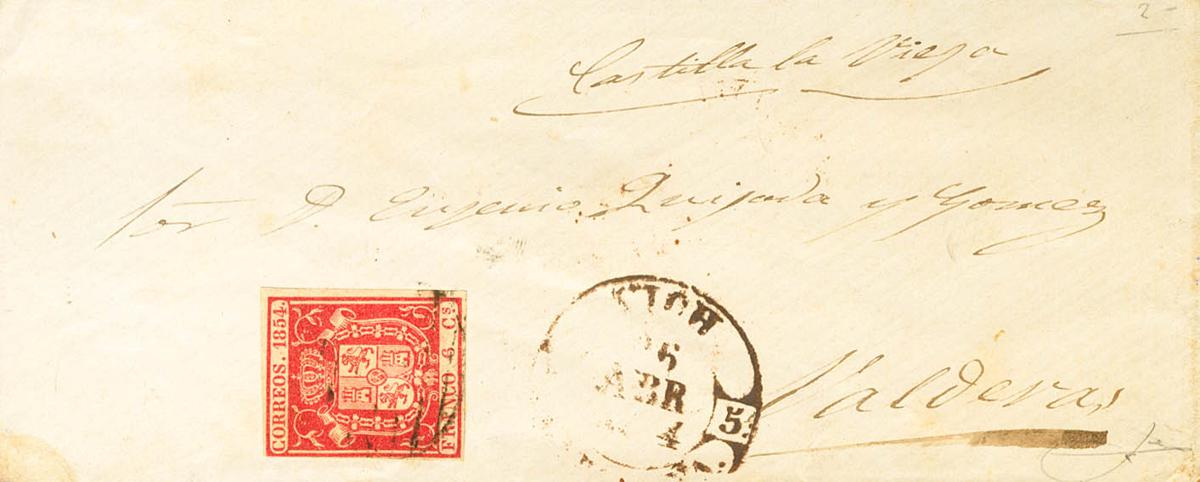 2
Castilla la Vieja
Sor D. Eugenio Quijada y Gomez
CORREOS. 1854.
FRANCO 6. Cs.
6
ABR
4
5
Valderas